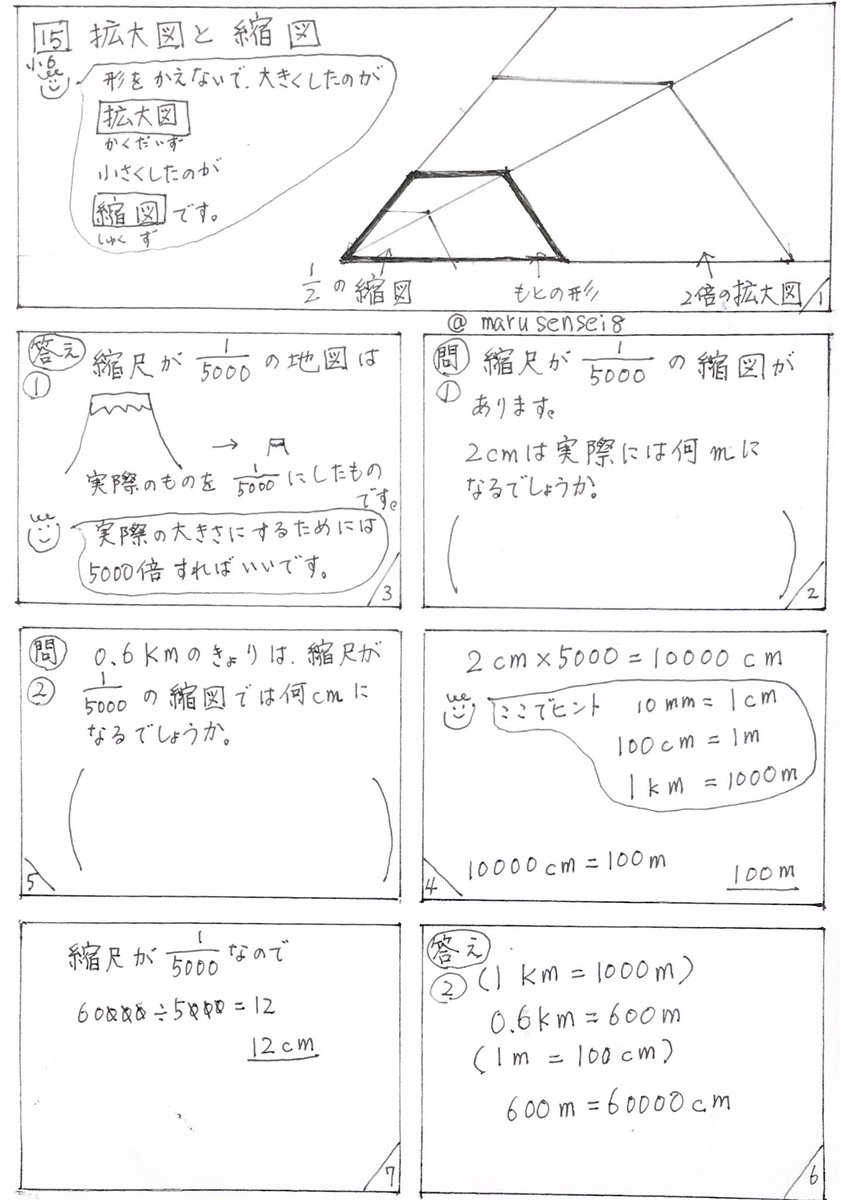 15 拡大図と縮図
小6
形をかえないで、大きくしたのが
拡大図
かくだいず
小さくしたのが
縮図です。
しゅくず
1/2の縮図
もとの形
2倍の拡大図
1
@marusensei8
問1
縮尺が1/5000の縮図が
あります。
2cmは実際には何mに
なるでしょうか。
( )
2
答え1
縮尺が1/5000の地図は
→
実際のものを1/5000にしたもの
です。
実際の大きさにするためには
5000倍すればいいです。
3
2cm×5000=10000cm
ここでヒント
10mm=1cm
100cm=1m
1km=1000m
10000cm=100m
100m
4
問2
0.6kmのきょりは、縮尺が
1/5000の縮図では何cmに
なるでしょうか。
( )
5
答え2
(1km=1000m)
0.6km=600m
(1m=100cm)
600m=60000cm
6
縮尺が1/5000なので
60000÷5000=12
12cm
7